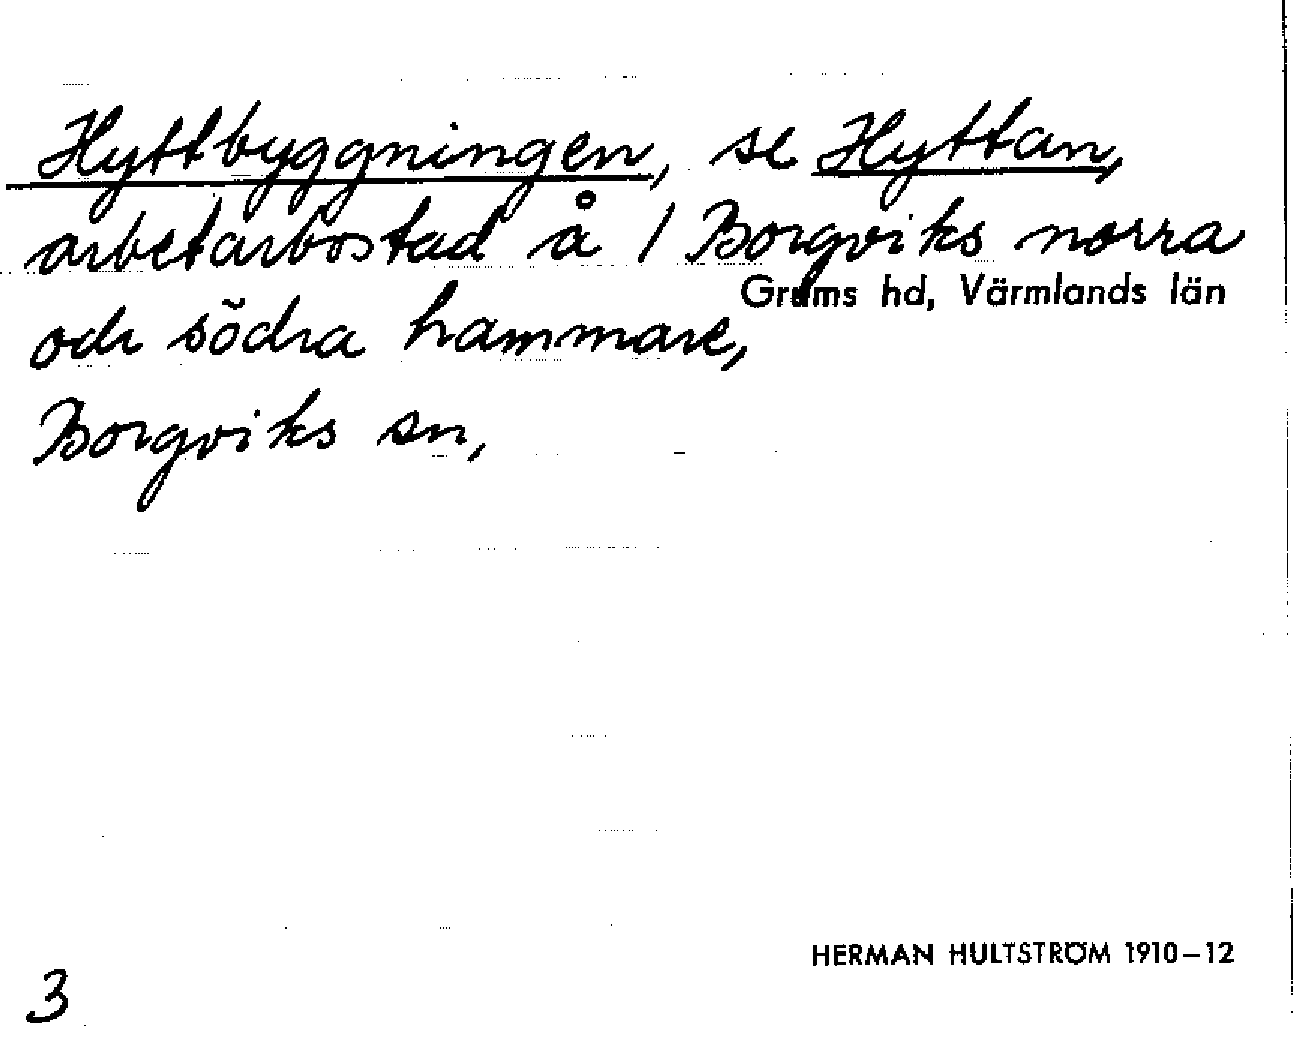 Hyttbyggningen, se Hyttan,
arbetarbostad å 1 Borgviks norra
Grums hd, Värmlands län
och södra hammare,
Borgviks sn,
HERMAN HULTSTRÖM 1910–12
3